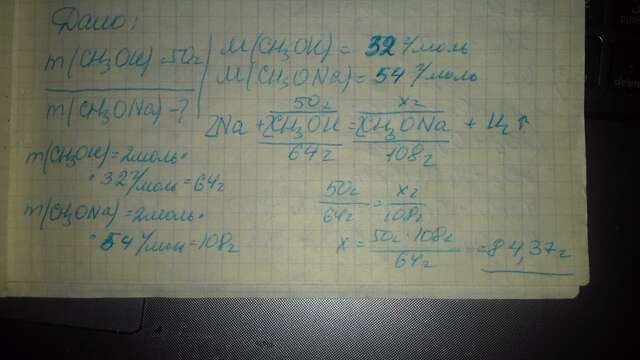 Дано:
m(CH₃OH)=50г
m(CH₃ONa)-?
M(CH₃OH)= 32 г/моль
M(CH₃ONa)= 54 г/моль
50г xг
2Na + 2CH₃OH = 2CH₃ONa + H₂↑
64г 108г
m(CH₃OH)=2моль·
·32г/моль=64г
m(CH₃ONa)=2моль·
·54г/моль=108г
50г/64г = xг/108г
x = 50г·108г/64г = 84,37г